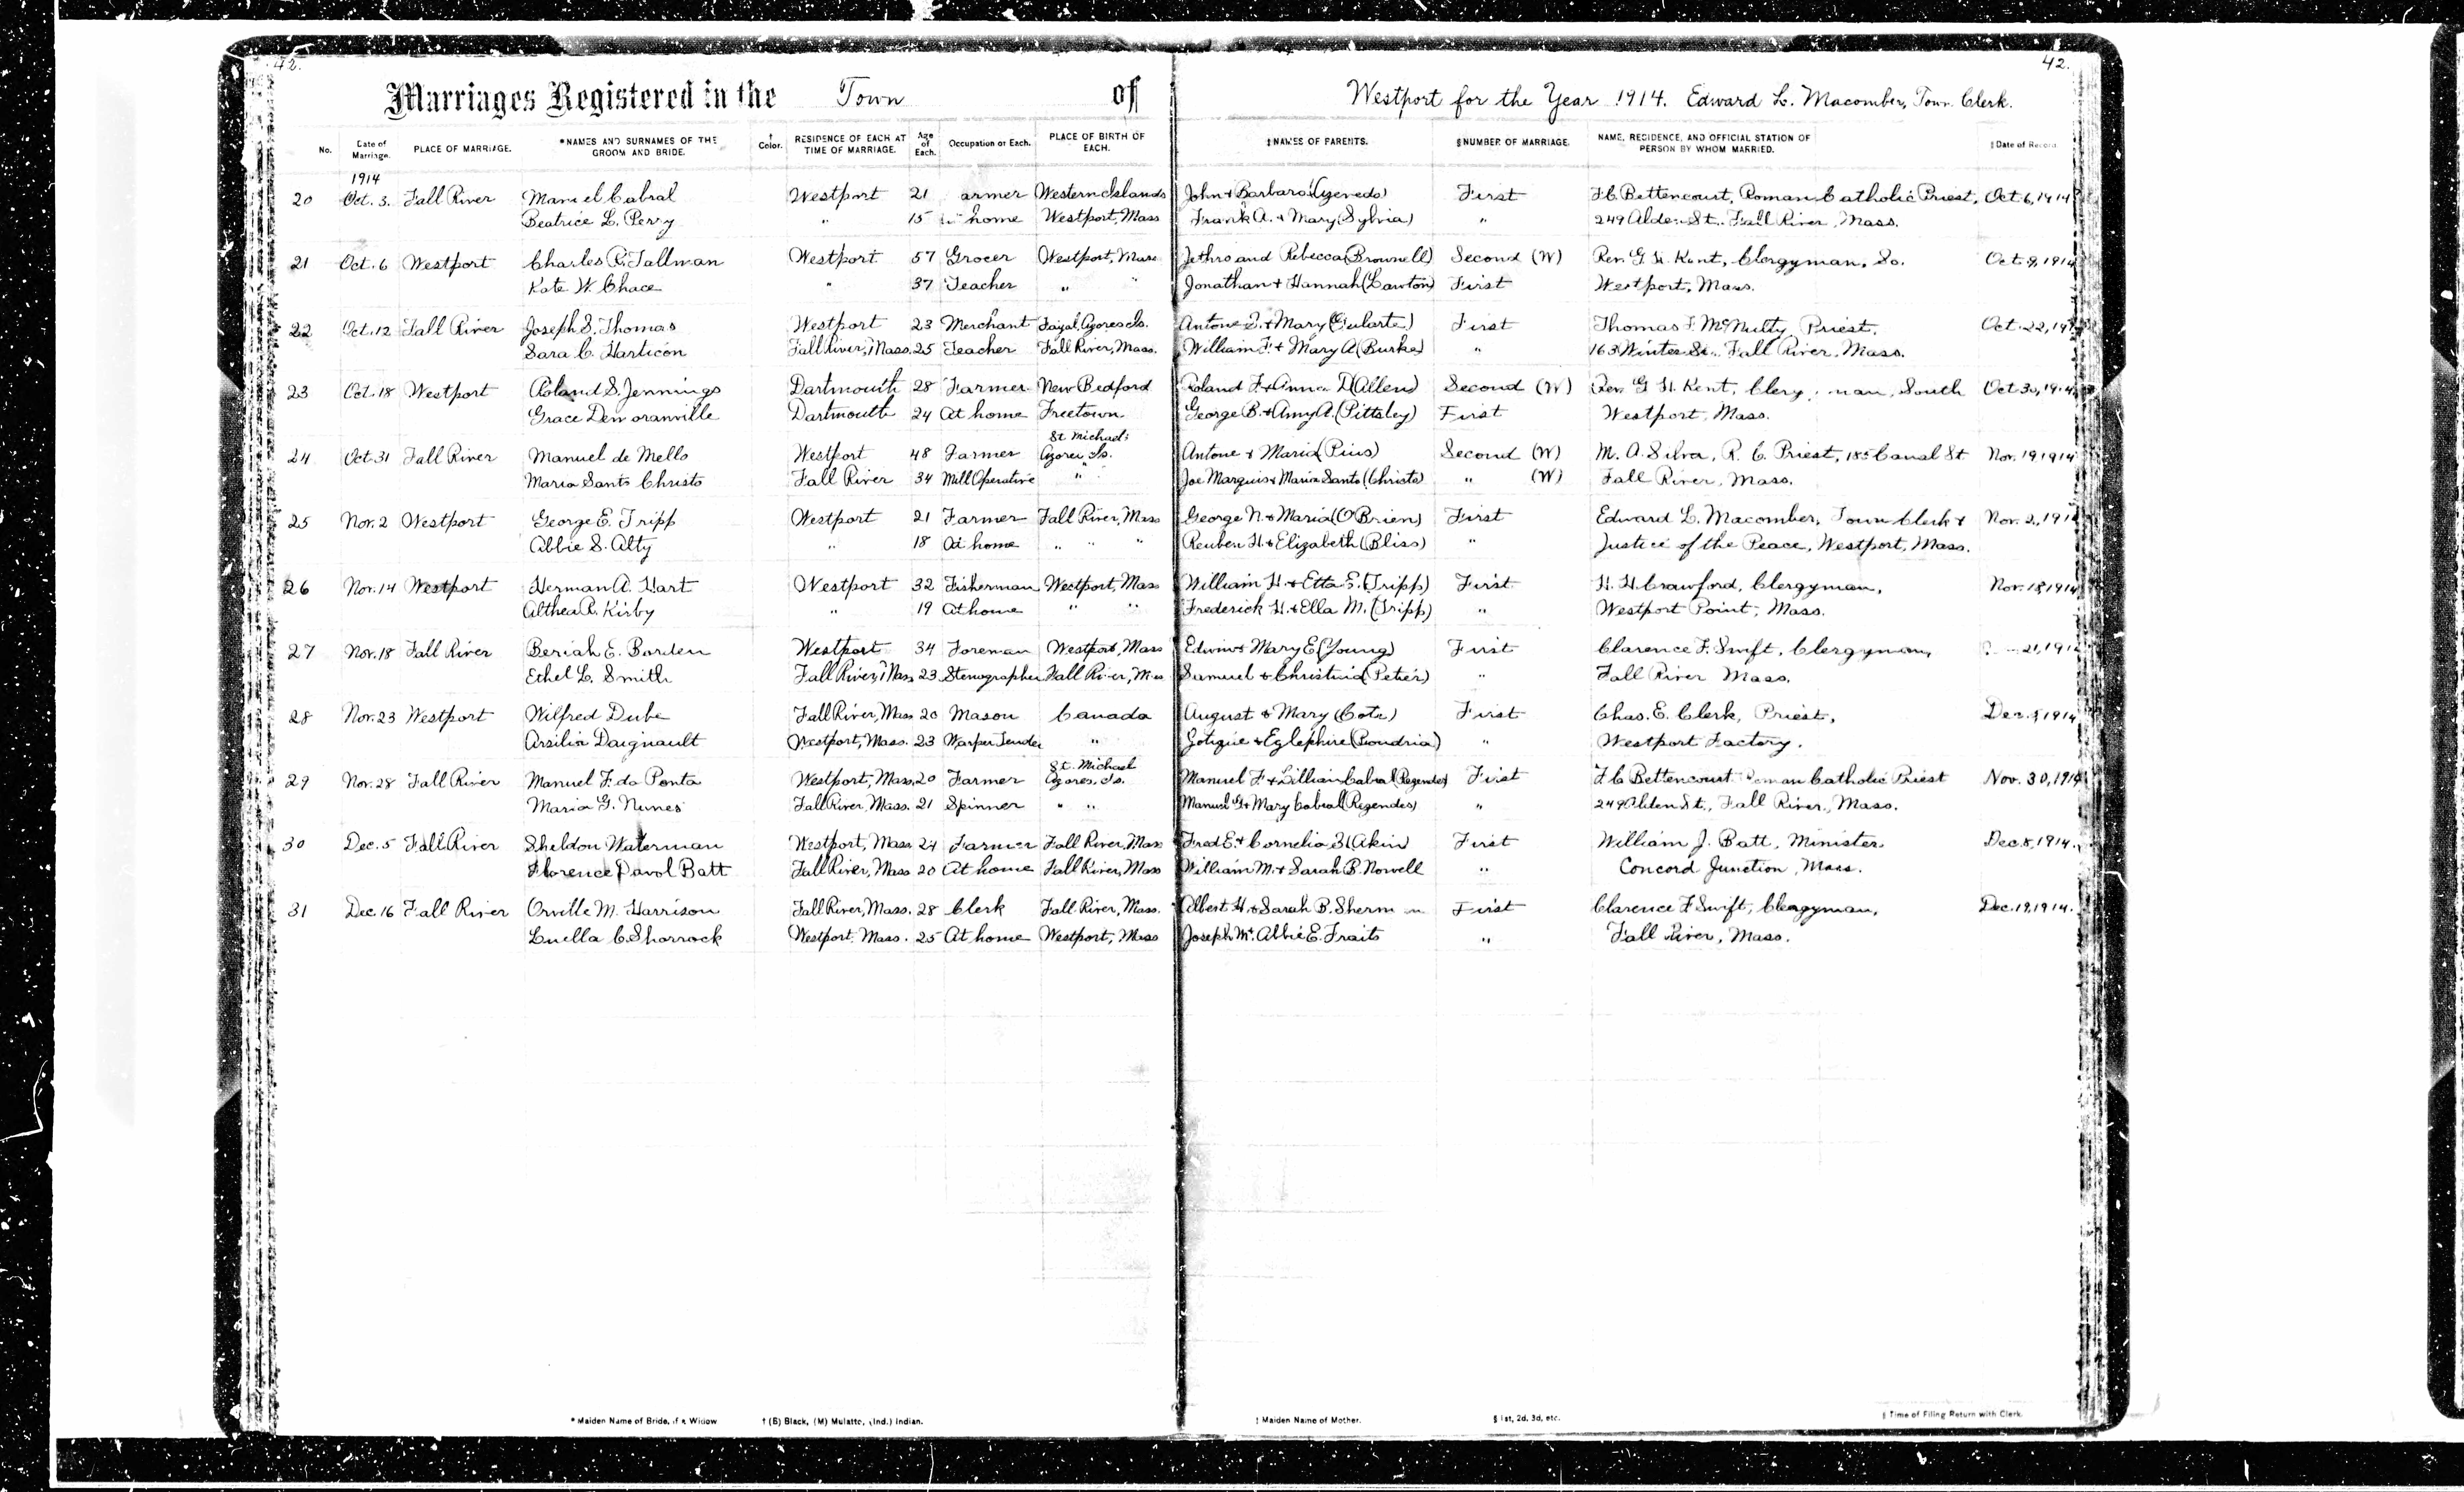 42. 42.
Marriages Registered in the Town of Westport for the Year 1914. Edward L. Macomber, Town Clerk.
No. Date of Marriage. PLACE OF MARRIAGE. *NAMES AND SURNAMES OF THE GROOM AND BRIDE. † Color. RESIDENCE OF EACH AT TIME OF MARRIAGE. Age of Each. Occupation of Each. PLACE OF BIRTH OF EACH. ‡NAMES OF PARENTS. §NUMBER OF MARRIAGE. NAME, RESIDENCE, AND OFFICIAL STATION OF PERSON BY WHOM MARRIED. ‖Date of Record.
1914
20 Oct. 3. Fall River Manuel Cabral Westport 21 armer Western Islands John & Barbara (Azevedo) First F.C. Bettencourt, Roman Catholic Priest, Oct. 6, 1914
Beatrice L. Perry " 15 home Westport, Mass Frank A. & Mary (Sylvia) " 249 Alden St. Fall River, Mass.
21 Oct. 6 Westport Charles R. Tallman Westport 57 Grocer Westport, Mass Jethro and Rebecca (Brownell) Second (W) Rev. G. H. Kent, Clergyman, So. Oct. 9, 1914
Kate W. Chace " 37 Teacher " " Jonathan & Hannah (Lawton) First Westport, Mass.
22 Oct. 12 Fall River Joseph S. Thomas Westport 23 Merchant Fayal, Azores Is. Antone S. & Mary (Gularte) First Thomas F. McNulty, Priest, Oct. 22, 19
Sara C. Harticon Fall River, Mass. 25 Teacher Fall River, Mass. William F. & Mary A (Burke) " 163 Winter St., Fall River, Mass.
23 Oct. 18 Westport Roland S. Jennings Dartmouth 28 Farmer New Bedford Roland F. & Anna D (Allen) Second (W) Rev. G. H. Kent, Clergyman, South Oct. 30, 1914
Grace Demoranville Dartmouth 24 At home Freetown George B. & Amy A. (Pittsley) First Westport, Mass.
St. Michael's
24 Oct. 31 Fall River Manuel de Mello Westport 48 Farmer Azores Is. Antone & Maria (Pius) Second (W) M. A. Silva, R. C. Priest, 185 Canal St Nov. 19, 1914
Maria Santo Christo Fall River 34 Mill Operative " Joe Marquis & Maria Santo (Christo) " (W) Fall River, Mass.
25 Nov. 2 Westport George E. Tripp Westport 21 Farmer Fall River, Mass George N. & Maria (O'Brien) First Edward L. Macomber, Town Clerk & Nov. 2, 191
Abbie S. Alty " 18 At home " " " Reuben H. & Elizabeth (Bliss) " Justice of the Peace, Westport, Mass.
26 Nov. 14 Westport Herman A. Hart Westport 32 Fisherman Westport, Mass William H. & Etta E. (Tripp) First H. H. Crawford, Clergyman, Nov. 18, 1914
Althea R. Kirby " 19 At home " " Frederick H. & Ella M. (Tripp) " Westport Point, Mass.
27 Nov. 18 Fall River Beriah E. Borden Westport 34 Foreman Westport, Mass Edwin & Mary E (Young) First Clarence F. Swift, Clergyman, 21, 191
Ethel L. Smith Fall River, Mass 23 Stenographer Fall River, Mass Samuel & Christina (Peter) " Fall River Mass.
28 Nov. 23 Westport Wilfred Dube Fall River, Mass 20 Mason Canada August & Mary (Cote) First Chas. E. Clerk, Priest, Dec. 5, 1914
Arsilia Daignault Westport, Mass. 23 Warper Tender " Zotique & Eglephire (Poudria) " Westport Factory.
St. Michael
29 Nov. 28 Fall River Manuel F. da Ponta Westport, Mass. 20 Farmer Azores, Is. Manuel F. & Lillian Cabral (Regendes) First F. C Bettencourt Roman Catholic Priest Nov. 30, 1914
Maria G. Nunes Fall River, Mass. 21 Spinner " " Manuel G. & Mary Cabral (Regendes) " 249 Alden St., Fall River, Mass.
30 Dec. 5 Fall River Sheldon Waterman Westport, Mass. 24 Farmer Fall River, Mass Fred E. & Cornelia B (Akin) First William J. Batt, Minister Dec. 8, 1914.
Florence Davol Batt Fall River, Mass 20 At home Fall River, Mass William M. & Sarah B. Nowell " Concord Junction, Mass.
31 Dec. 16 Fall River Orville M. Harrison Fall River, Mass. 28 Clerk Fall River, Mass. Albert H. & Sarah B. Sherman First Clarence F. Swift, Clergyman, Dec. 19, 1914.
Luella C. Shorrock Westport, Mass. 25 At home Westport, Mass Joseph M. & Abbie E. Fraits " Fall River, Mass.
* Maiden Name of Bride, if a Widow † (B) Black, (M) Mulatto, (Ind.) Indian. ‡ Maiden Name of Mother. § 1st, 2d, 3d, etc. ‖ Time of Filing Return with Clerk.